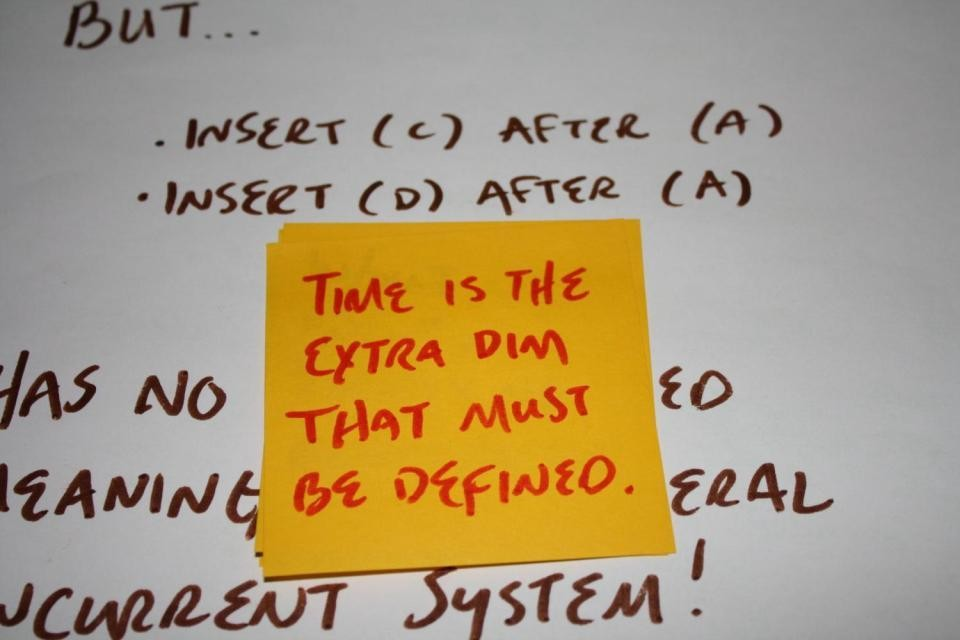 BUT...
. INSERT (C) AFTER (A)
. INSERT (D) AFTER (A)
TIME IS THE
EXTRA DIM
THAT MUST
BE DEFINED.
HAS NO ED
MEANING ERAL
NCURRENT SYSTEM!